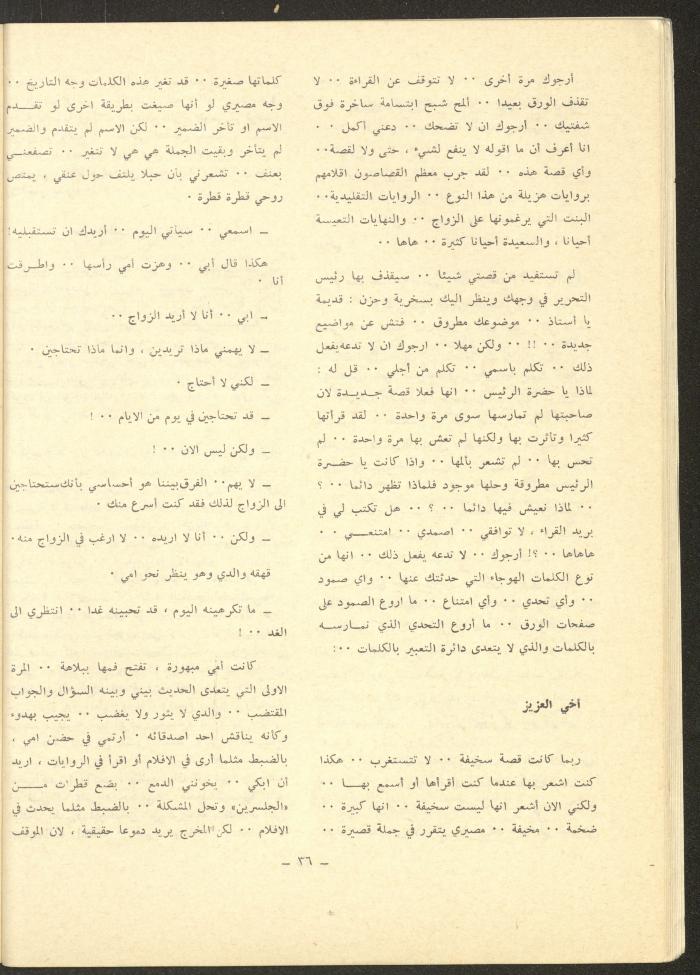 أرجوك مرة أخرى ٠٠ لا تتوقف عن القراءة ٠٠ لا
تقذف الورق بعيدا ٠٠ ألمح شبح ابتسامة ساخرة فوق
شفتيك ٠٠ أرجوك ان لا تضحك ٠٠ دعني أكمل ٠٠
انا أعرف أن ما اقوله لا ينفع لشيء ، حتى ولا لقصة٠٠
وأي قصة هذه ٠٠ لقد جرب معظم القصاصون اقلامهم
بروايات هزيلة من هذا النوع ٠٠ الروايات التقليدية٠٠
البنت التي يرغمونها على الزواج ٠٠ والنهايات التعيسة
أحيانا ، والسعيدة أحيانا كثيرة ٠٠ هاها ٠٠
لم تستفيد من قصتي شيئا ٠٠ سيقذف بها رئيس
التحرير في وجهك وينظر اليك بسخرية وحزن : قديمة
يا أستاذ ٠٠ موضوعك مطروق ٠٠ فتش عن مواضيع
جديدة ٠٠ !! ٠٠ ولكن مهلا ٠٠ ارجوك ان لا تدعه يفعل
ذلك ٠٠ تكلم باسمي ٠٠ تكلم من أجلي ٠٠ قل له :
لماذا يا حضرة الرئيس ٠٠ انها فعلا قصة جديدة لان
صاحبتها لم تمارسها سوى مرة واحدة ٠٠ لقد قرأتها
كثيرا وتأثرت بها ولكنها لم تعش بها مرة واحدة ٠٠ لم
تحس بها ٠٠ لم تشعر بألمها ٠٠ واذا كانت يا حضرة
الرئيس مطروقة وحلها موجود فلماذا تظهر دائما ٠٠ ؟
٠٠ لماذا نعيش فيها دائما ٠٠ ؟ ٠٠ هل تكتب لي في
بريد القراء ، لا توافقي ٠٠ اصمدي ٠٠ امتنعي ٠٠
هاهاها ٠٠ ؟! أرجوك ٠٠ لا تدعه يفعل ذلك ٠٠ انها من
نوع الكلمات الهوجاء التي حدثتك عنها ٠٠ واي صمود
٠٠ وأي تحدي ٠٠ وأي امتناع ٠٠ ما اروع الصمود على
صفحات الورق ٠٠ ما أروع التحدي الذي نمارسه
بالكلمات والذي لا يتعدى دائرة التعبير بالكلمات ٠٠:
أخي العزيز
ربما كانت قصة سخيفة ٠٠ لا تتستغرب ٠٠ هكذا
كنت اشعر بها عندما كنت اقرأها أو أسمع بها ٠٠
ولكني الان أشعر انها ليست سخيفة ٠٠ انها كبيرة ٠٠
ضخمة ٠٠ مخيفة ٠٠ مصيري يتقرر في جملة قصيرة ٠٠
كلماتها صغيرة ٠٠ قد تغير هذه الكلمات وجه التاريخ ٠٠
وجه مصيري لو أنها صيغت بطريقة اخرى لو تقدم
الاسم او تأخر الضمير ٠٠ لكن الاسم لم يتقدم والضمير
لم يتأخر وبقيت الجملة هي هي لا تتغير ٠٠ تصفعني
بعنف ٠٠ تشعرني بأن حبلا يلتف حول عنقي ، يمتص
روحي قطرة قطرة ٠
ـ اسمعي ٠٠ سيأتي اليوم ٠٠ أريدك ان تستقبليه!
هكذا قال أبي ٠٠ وهزت أمي رأسها ٠٠ واطرقت
أنا ٠
ـ ابي ٠٠ أنا لا أريد الزواج ٠٠
ـ لا يهمني ماذا تريدين ، وانما ماذا تحتاجين ٠
ـ لكني لا أحتاج ٠
ـ قد تحتاجين في يوم من الايام ٠٠ !
ـ ولكن ليس الان ٠٠ !
ـ لا يهم٠٠ الفرق بيننا هو أحساسي بأنك ستحتاجين
الى الزواج لذلك فقد كنت أسرع منك ٠
ـ ولكن ٠٠ أنا لا اريده ٠٠ لا ارغب في الزواج منه٠
قهقه والدي وهو ينظر نحو امي ٠
ـ ما تكرهينه اليوم ، قد تحبينه غدا ٠٠ انتظري الى
الغد ٠٠ !
كانت أمي مبهورة ، تفتح فمها ببلاهة ٠٠ المرة
الاولى التي يتعدى الحديث بيني وبينه السؤال والجواب
المقتضب ٠٠ والدي لا يثور ولا يغضب ٠٠ يجيب بهدوء
وكأنه يناقش احد اصدقائه ٠ أرتمي في حضن امي ،
بالضبط مثلما أرى في الافلام أو اقرأ في الروايات ، اريد
أن ابكي ٠٠ يخونني الدمع ٠٠ بضع قطرات من
«الجلسرين» وتحل المشكلة ٠٠ بالضبط مثلما يحدث في
الافلام ٠٠ لكن المخرج يريد دموعا حقيقية ، لان الموقف
ـ ٣٦ ـ